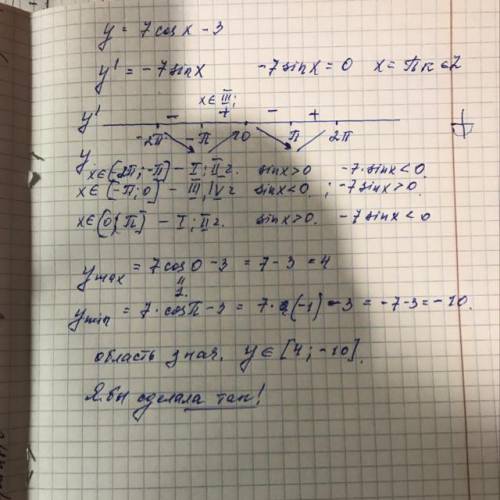 y = 7cosx - 3
y' = -7sinx   -7sinx = 0   x = πк ∈ Z
x ∈ III;
y'   -   +   -   +
-2π   -π   0   π   2π
y
x ∈ (-2π; -π] - I; II г.   sinx > 0   -7·sinx < 0
x ∈ [-π; 0] - III, IV г   sinx < 0 ; -7sinx > 0.
x ∈ [0; π] - I; II г.   sinx > 0.   -7sinx < 0
y max = 7cos0 - 3 = 7 - 3 = 4
"
1.
y min = 7·cosπ - 3 = 7·(-1) - 3 = -7-3 = -10.
область знач. y ∈ [4; -10].
Я бы сделала так!